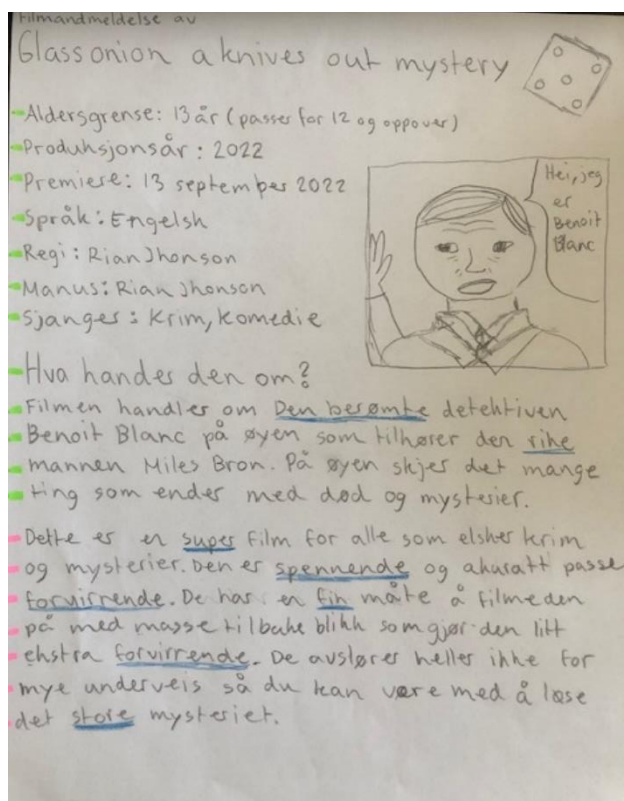 Filmandmeldelse av
Glassonion a knives out mystery
Aldersgrense: 13 år (passer for 12 og oppover)
Produksjonsår: 2022
Premiere: 13 september 2022
Språk: Engelsk
Regi: Rian Jhonson
Manus: Rian Jhonson
Sjanger: Krim, komedie
Hei, jeg
er
Benoit
Blanc
Hva handler den om?
Filmen handler om Den berømte detektiven
Benoit Blanc på øyen som tilhører den rike
mannen Miles Bron. På øyen skjer det mange
ting som ender med død og mysterier.
Dette er en super film for alle som elsker krim
og mysterier. Den er spennende og akuratt passe
forvirrende. De har en fin måte å filme den
på med masse tilbake blikk som gjør den litt
ekstra forvirrende. De avslører heller ikke for
mye underveis så du kan være med å løse
det store mysteriet.